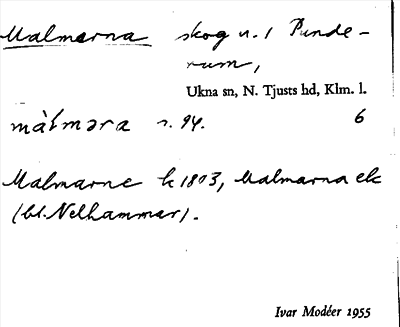 Malmarna skog n. 1 Punde-
rum,
Ukna sn, N. Tjusts hd, Klm. l.
màlməra r. 94. 6
Malmarne k 1803, Malmarna ek
(bl. Nelhammar).
Ivar Modéer 1955